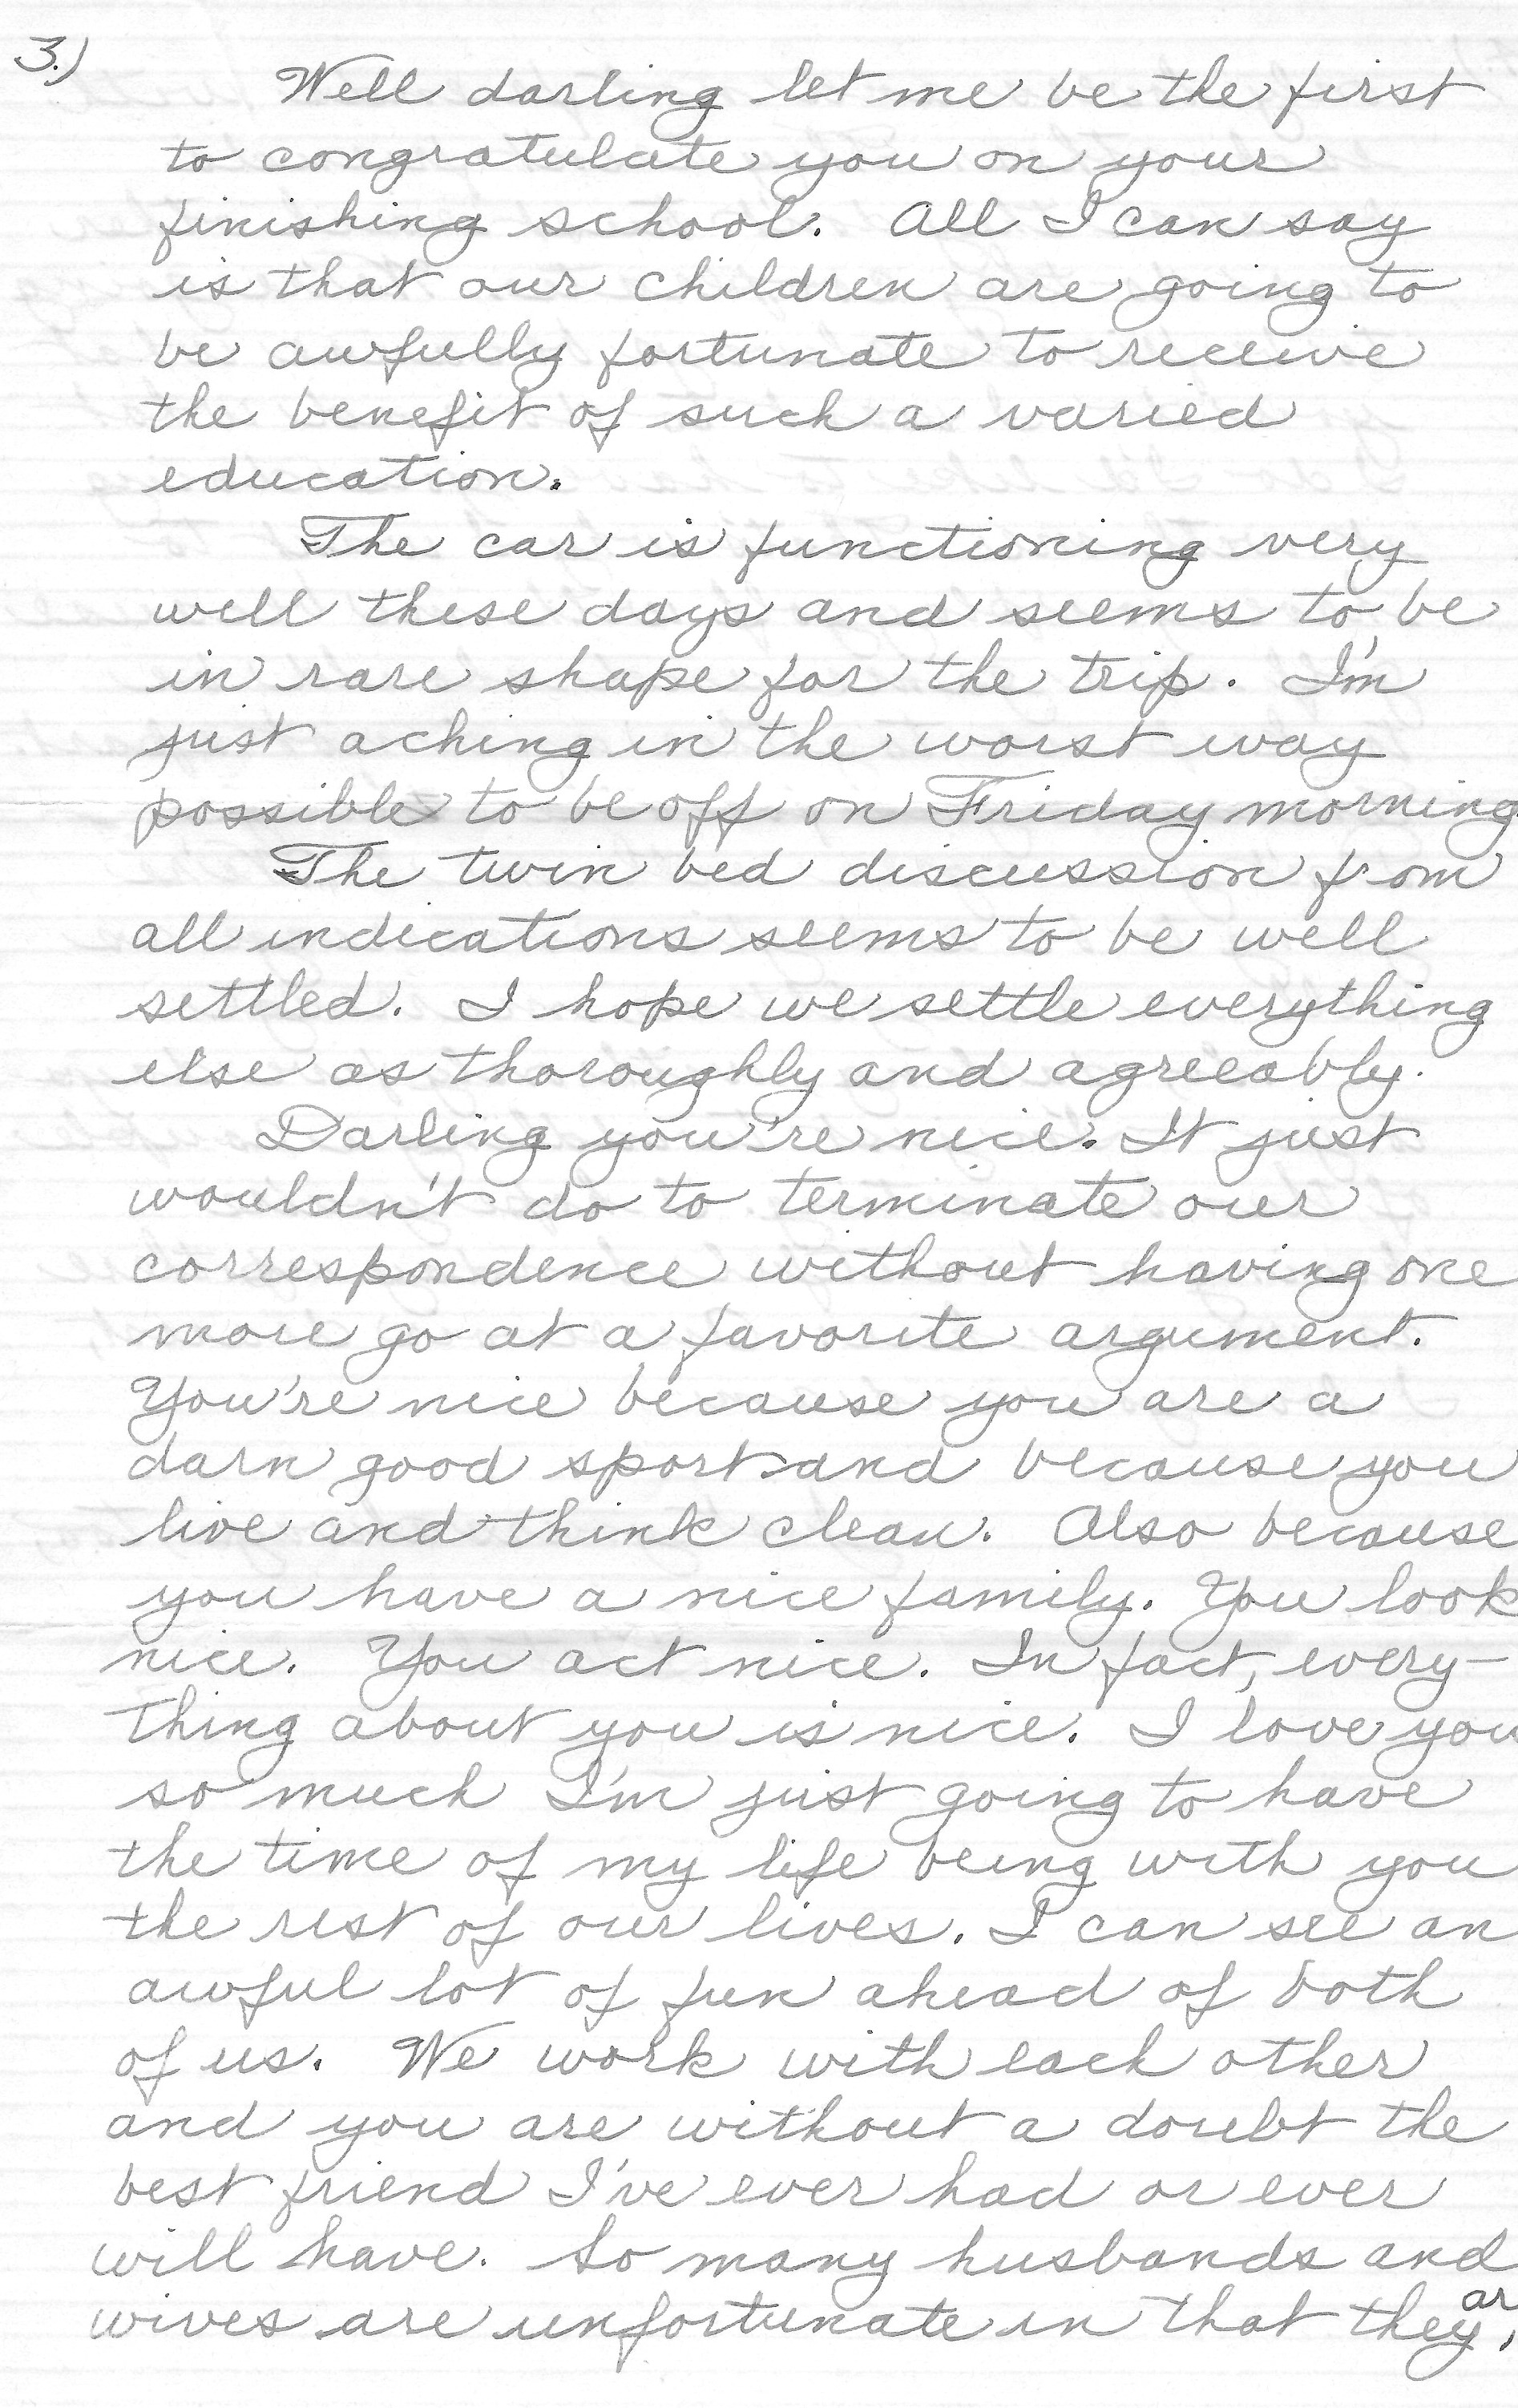 3.)
Well darling let me be the first
to congratulate you on your
finishing school. All I can say
is that our children are going to
be awfully fortunate to receive
the benefit of such a varied
education.
The car is functioning very
well these days and seems to be
in rare shape for the trip. I'm
just aching in the worst way
possible to be off on Friday morning.
The twin bed discussion from
all indications seems to be well
settled. I hope we settle everything
else as thoroughly and agreeably.
Darling you're nice. It just
wouldn't do to terminate our
correspondence without having one
more go at a favorite argument.
You're nice because you are a
darn good sport and because you
live and think clean. Also because
you have a nice family. You look
nice. You act nice. In fact, every-
thing about you is nice. I love you
so much I'm just going to have
the time of my life being with you
the rest of our lives. I can see an
awful lot of fun ahead of both
of us. We work with each other
and you are without a doubt the
best friend I've ever had or ever
will have. So many husbands and
wives are unfortunate in that they